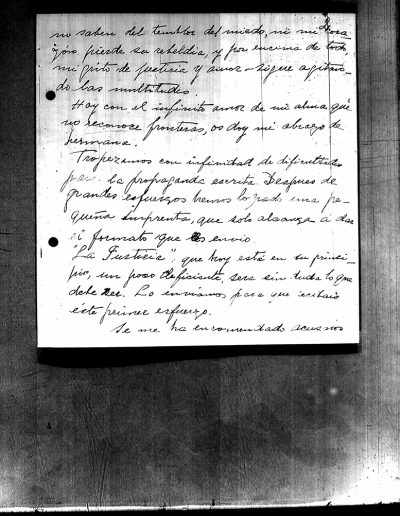 no saben del temblor del miedo, ni mi Cora
zón pierde su rebeldía, y por encima de todo
mi grito de justicia y amor - sigue agitan-
do las multitudes.
Hoy con el infinito amor de mi alma que
no reconoce fronteras, os doy mi abrazo de
hermana.
Tropezamos con infinidad de dificultades
para la propaganda escrita. Despues de
grandes esfuerzos hemos logrado una pe-
queña imprenta, que solo alcanza á dar
el formato que os envio.
"La Justicia": que hoy está en su princi-
pio, un poco deficiente, sera sin duda lo que
debe ser. La enviamos para que
este primer esfuerzo.
Se me ha encomendado acusaros